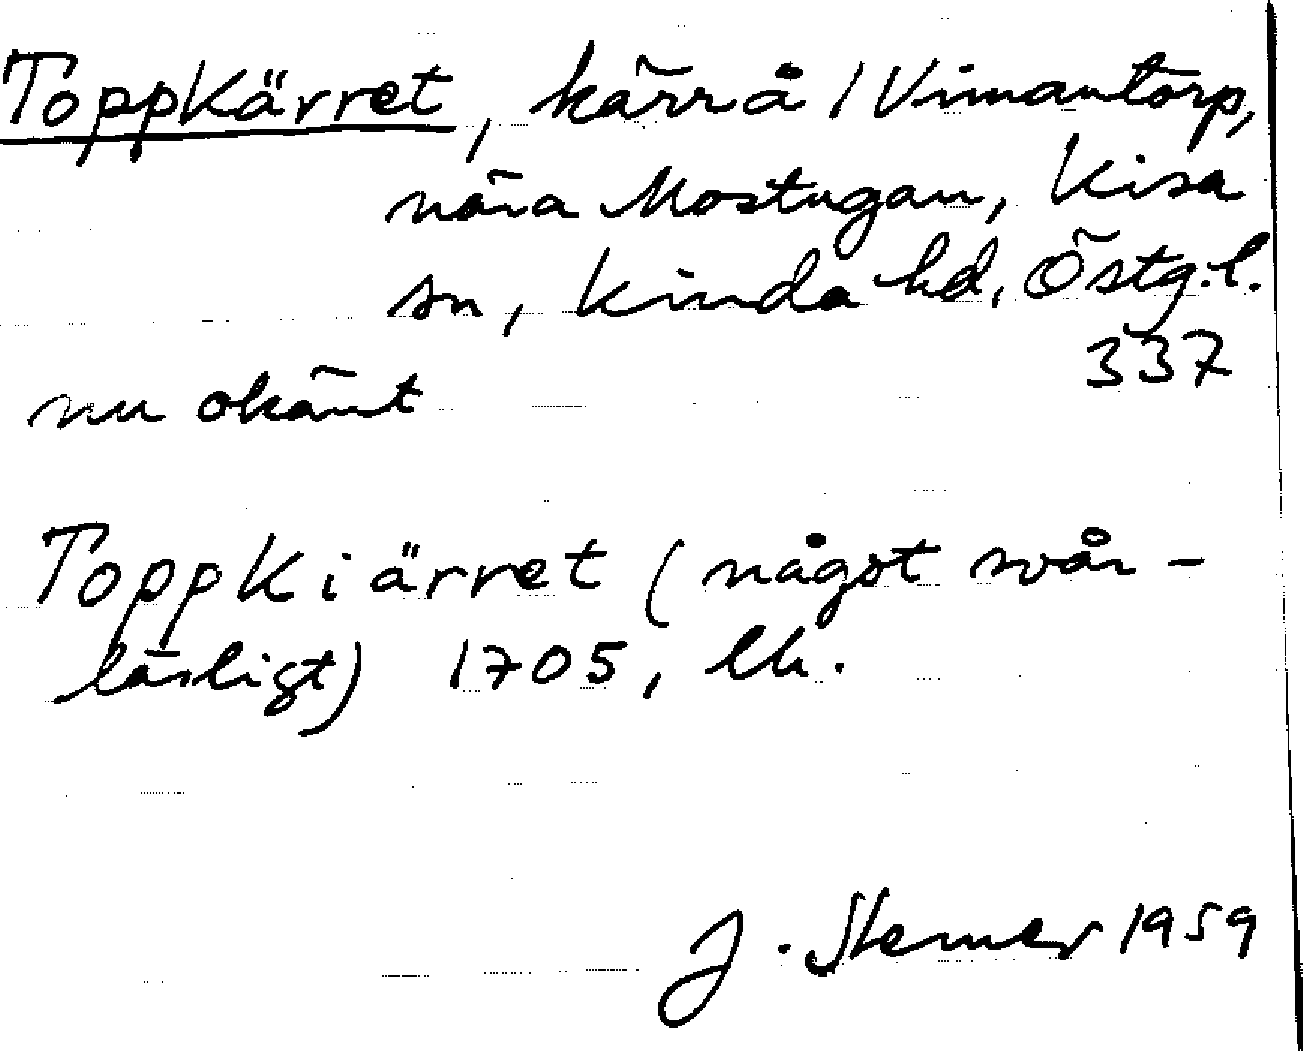 ToppKärret, kärr å 1 Vimantorp,
nära Mostugan, Kisa
sn, Kinda hd, Östg. l.
337
nu okänt
ToppKiärret (något svår-
läsligt) 1705, lh.
J. 1959